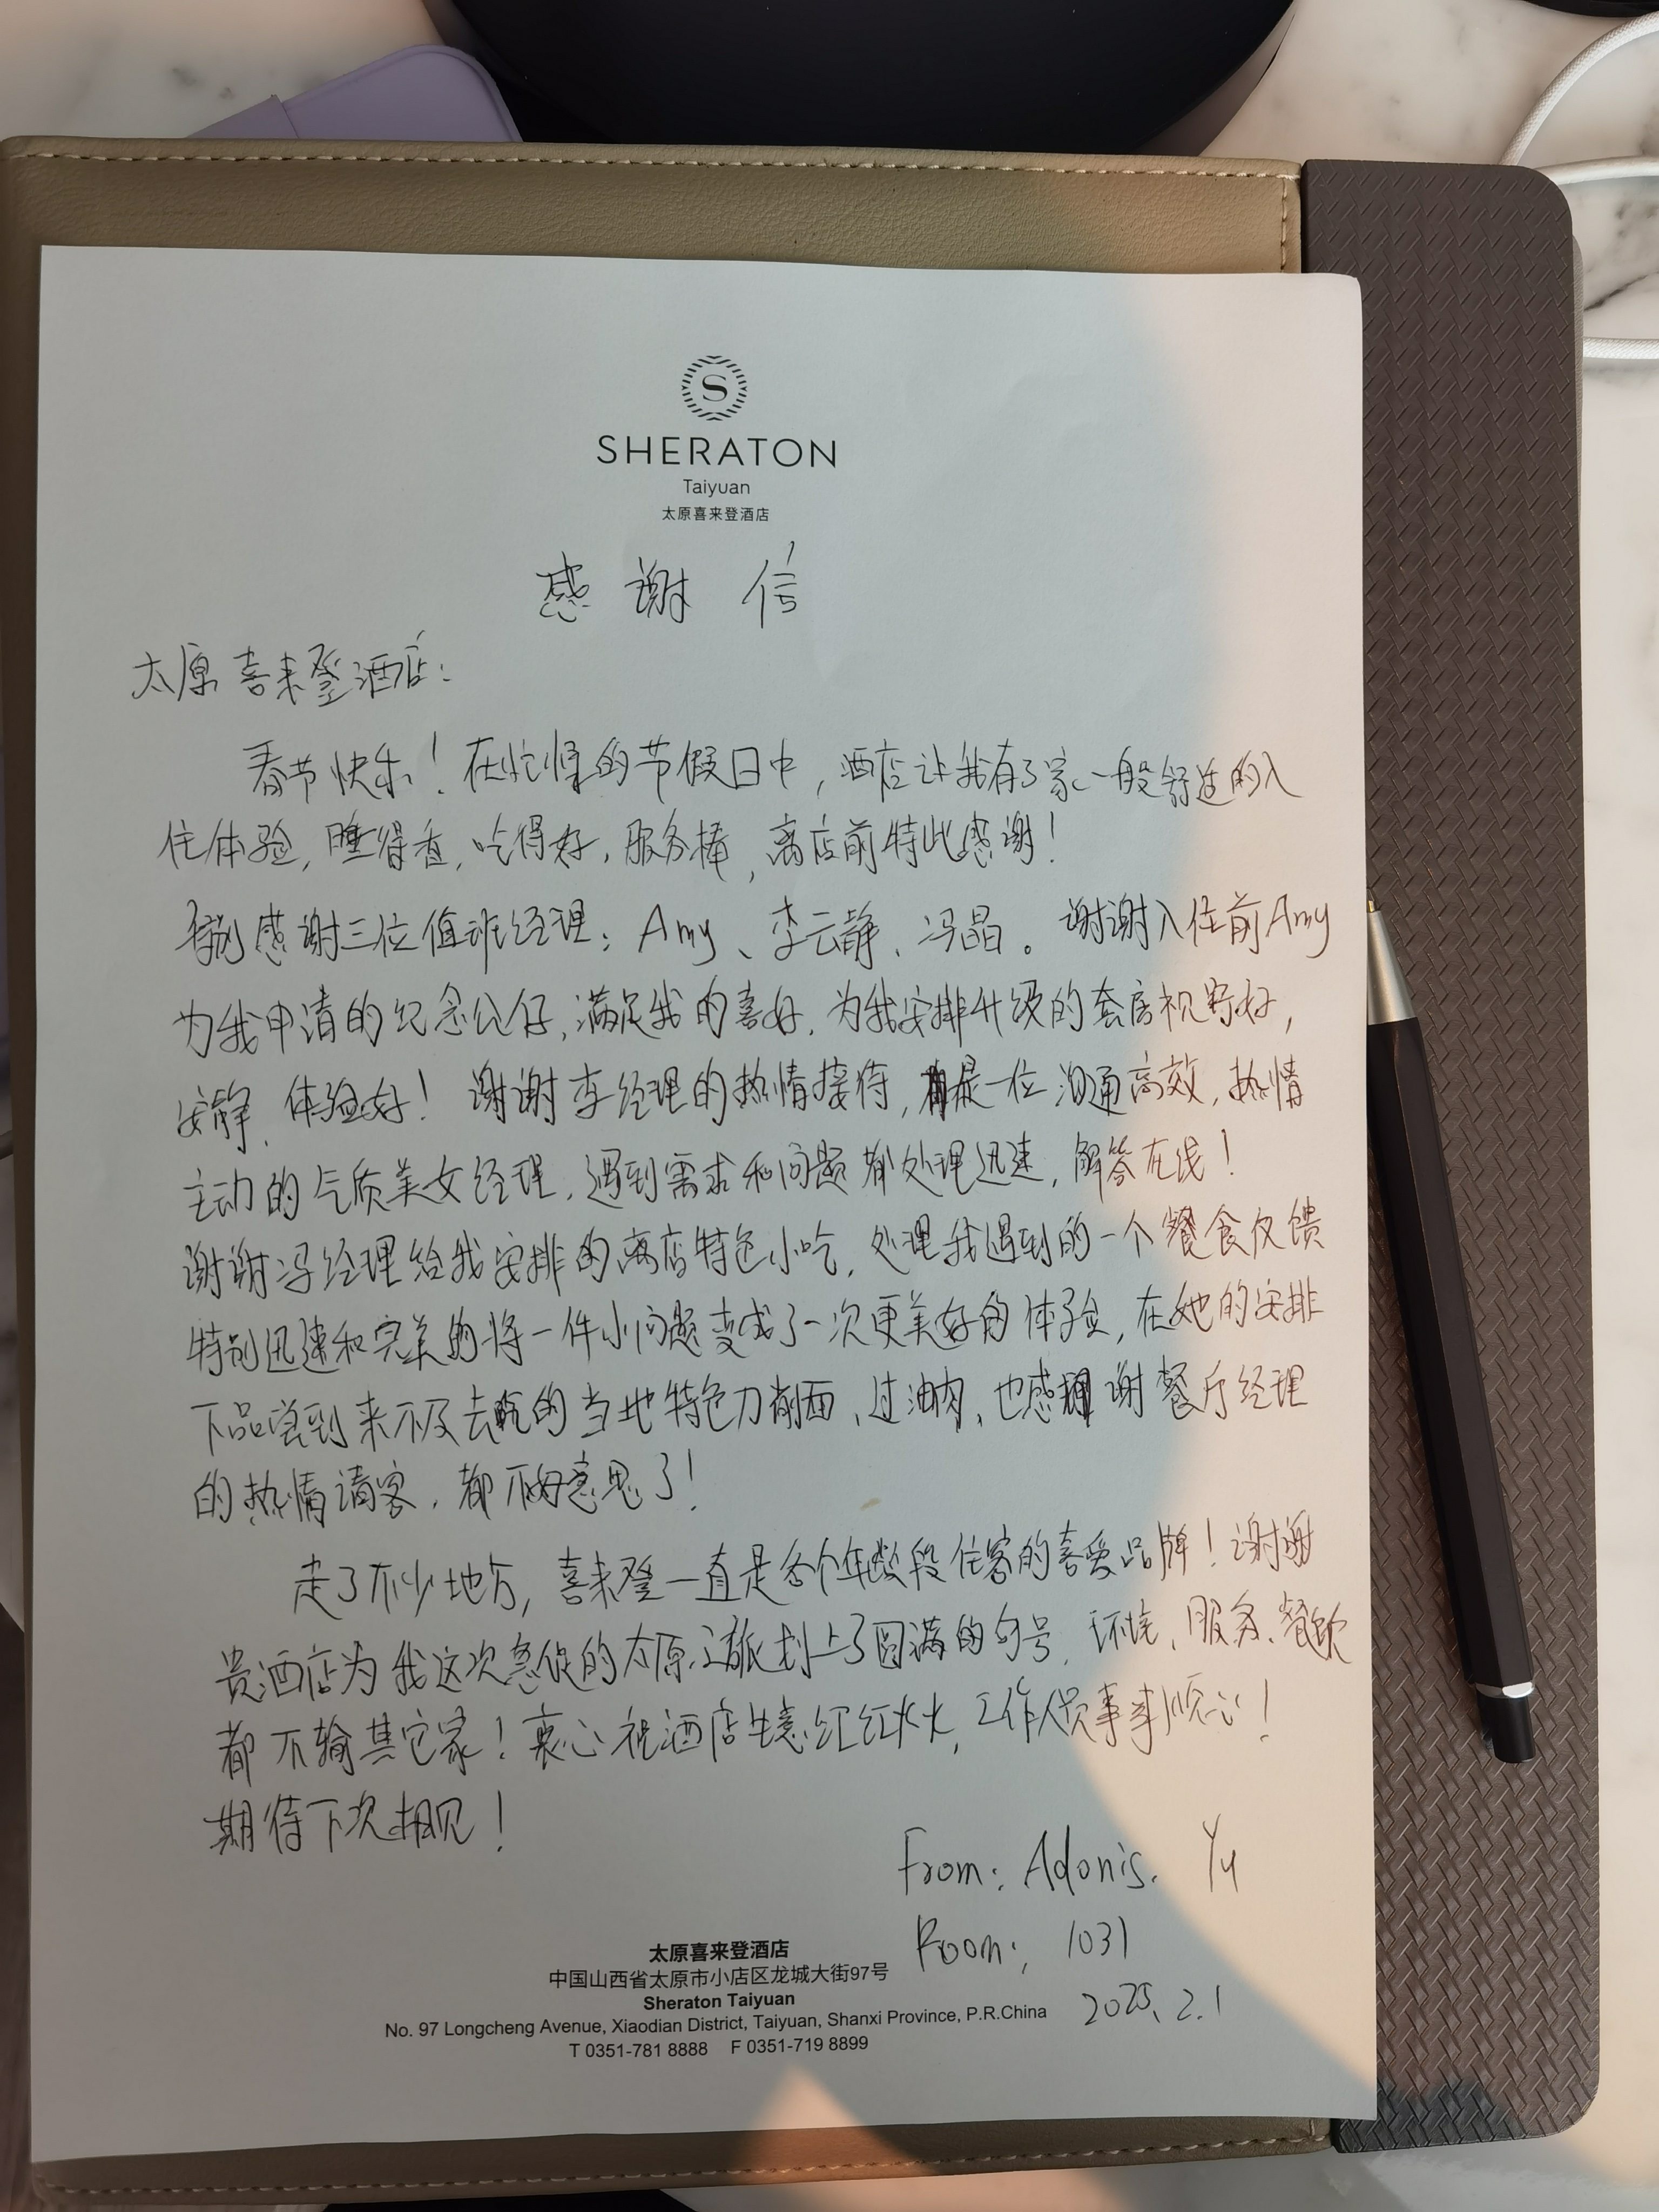 S
SHERATON
Taiyuan
太原喜来登酒店
感谢信
太原喜来登酒店：
春节快乐！在忙碌的节假日中，酒店让我有了家一般舒适的入
住体验，睡得香，吃得好，服务棒，离店前特此感谢！
特别感谢三位值班经理：Amy、李云静、冯晶。谢谢入住前Amy
为我申请的纪念公仔，满足我的喜好，为我安排升级的套房视野好，
安静，体验好！谢谢李经理的热情接待，是一位沟通高效，热情
主动的气质美女经理，遇到需求和问题都处理迅速，解答在线！
谢谢冯经理给我安排的离店特色小吃，处理我遇到的一个餐食反馈
特别迅速和完美的将一件小问题变成了一次更美好的体验，在她的安排
下品尝到来不及去吃的当地特色刀削面、过油肉，也感谢餐厅经理
的热情请客，都不好意思了！
走了不少地方，喜来登一直是各个年龄段住客的喜爱品牌！谢谢
贵酒店为我这次急促的太原之旅划上了圆满的句号，环境、服务、餐饮
都不输其它家！衷心祝酒店生意红红火火，工作人员事事顺心！
期待下次相见！
From: Adonis. Yu
Room: 1031
2025.2.1
太原喜来登酒店
中国山西省太原市小店区龙城大街97号
Sheraton Taiyuan
No. 97 Longcheng Avenue, Xiaodian District, Taiyuan, Shanxi Province, P.R.China
T 0351-781 8888 F 0351-719 8899